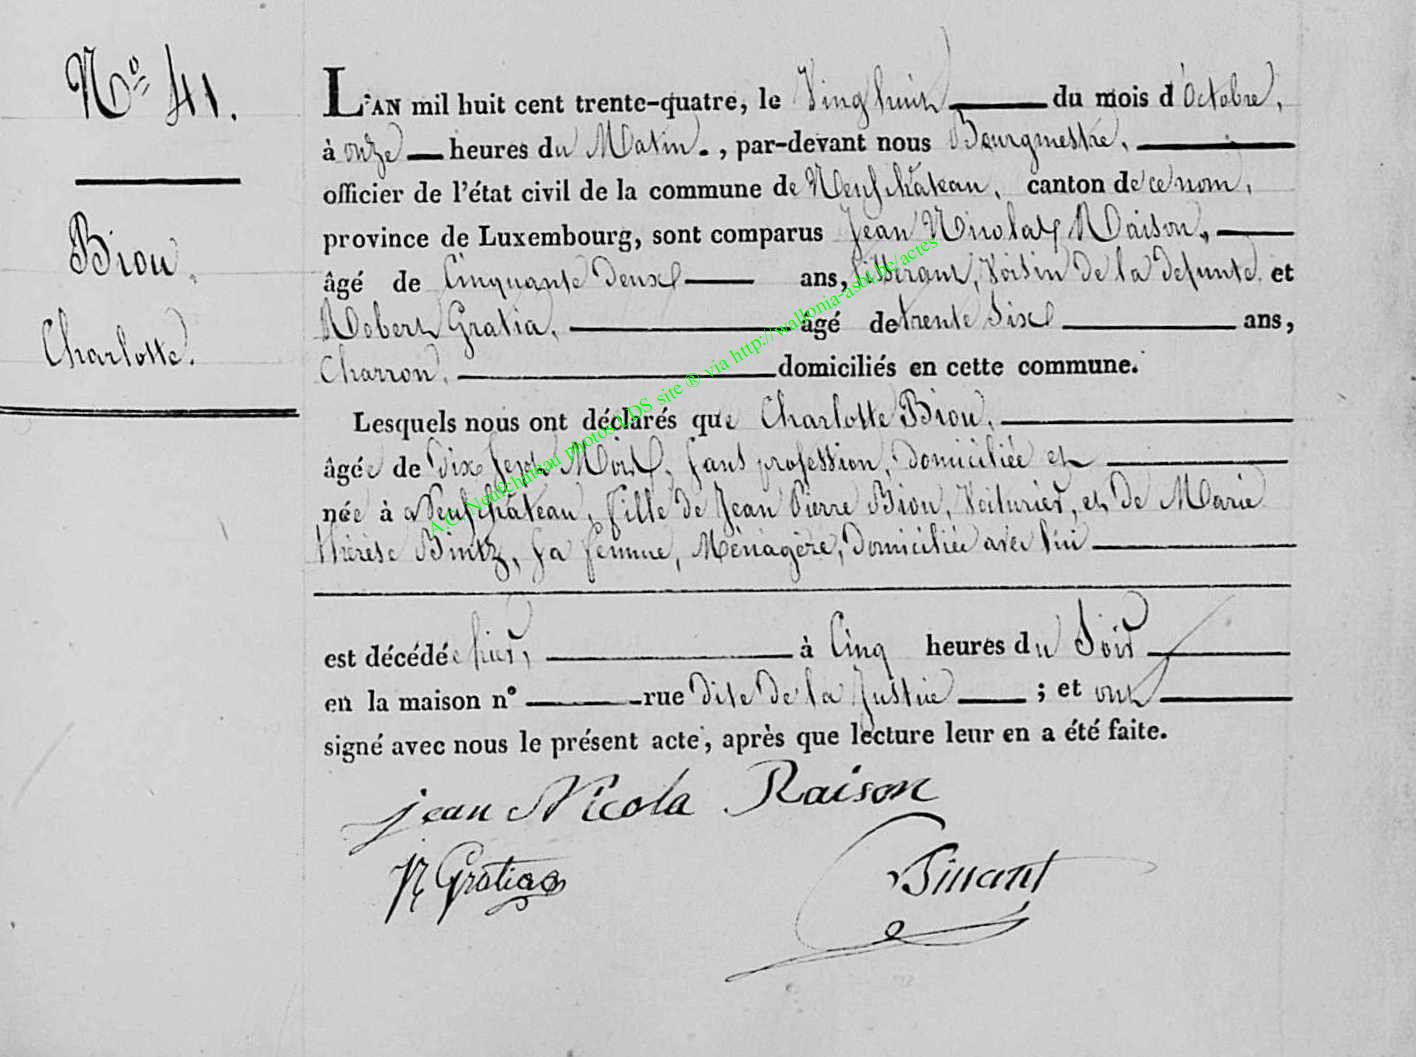 N° 41.
Biou,
Charlotte.
L'AN mil huit cent trente-quatre, le Vinghuit du mois d'Octobre,
à onze heures du Matin., par-devant nous Bourgmestre,
officier de l'état civil de la commune de Neufchâteau, canton de ce nom,
province de Luxembourg, sont comparus Jean Nicolas Raison,
âgé de Cinquante deux ans, Tisserant, Voisin de la defunte et
Robert Gratia, âgé de trente Six ans,
Charron, domiciliés en cette commune.
Lesquels nous ont déclarés que Charlotte Biou,
âgée de Dix Sept Mois, sans profession, domiciliée et
née à Neufchâteau, fille de Jean Pierre Biou, Voiturier, et de Marie
thérèse Bintz, sa femme, Ménagère, domiciliée avec lui
est décédée hier, à Cinq heures du Soir
en la maison n° rue dite de la Justice ; et ont
signé avec nous le présent acte, après que lecture leur en a été faite.
jean Nicola Raison
R Gratia
A.C. Neufchâteau photos LDS site ® via http://wallonia-asbl.be/actes